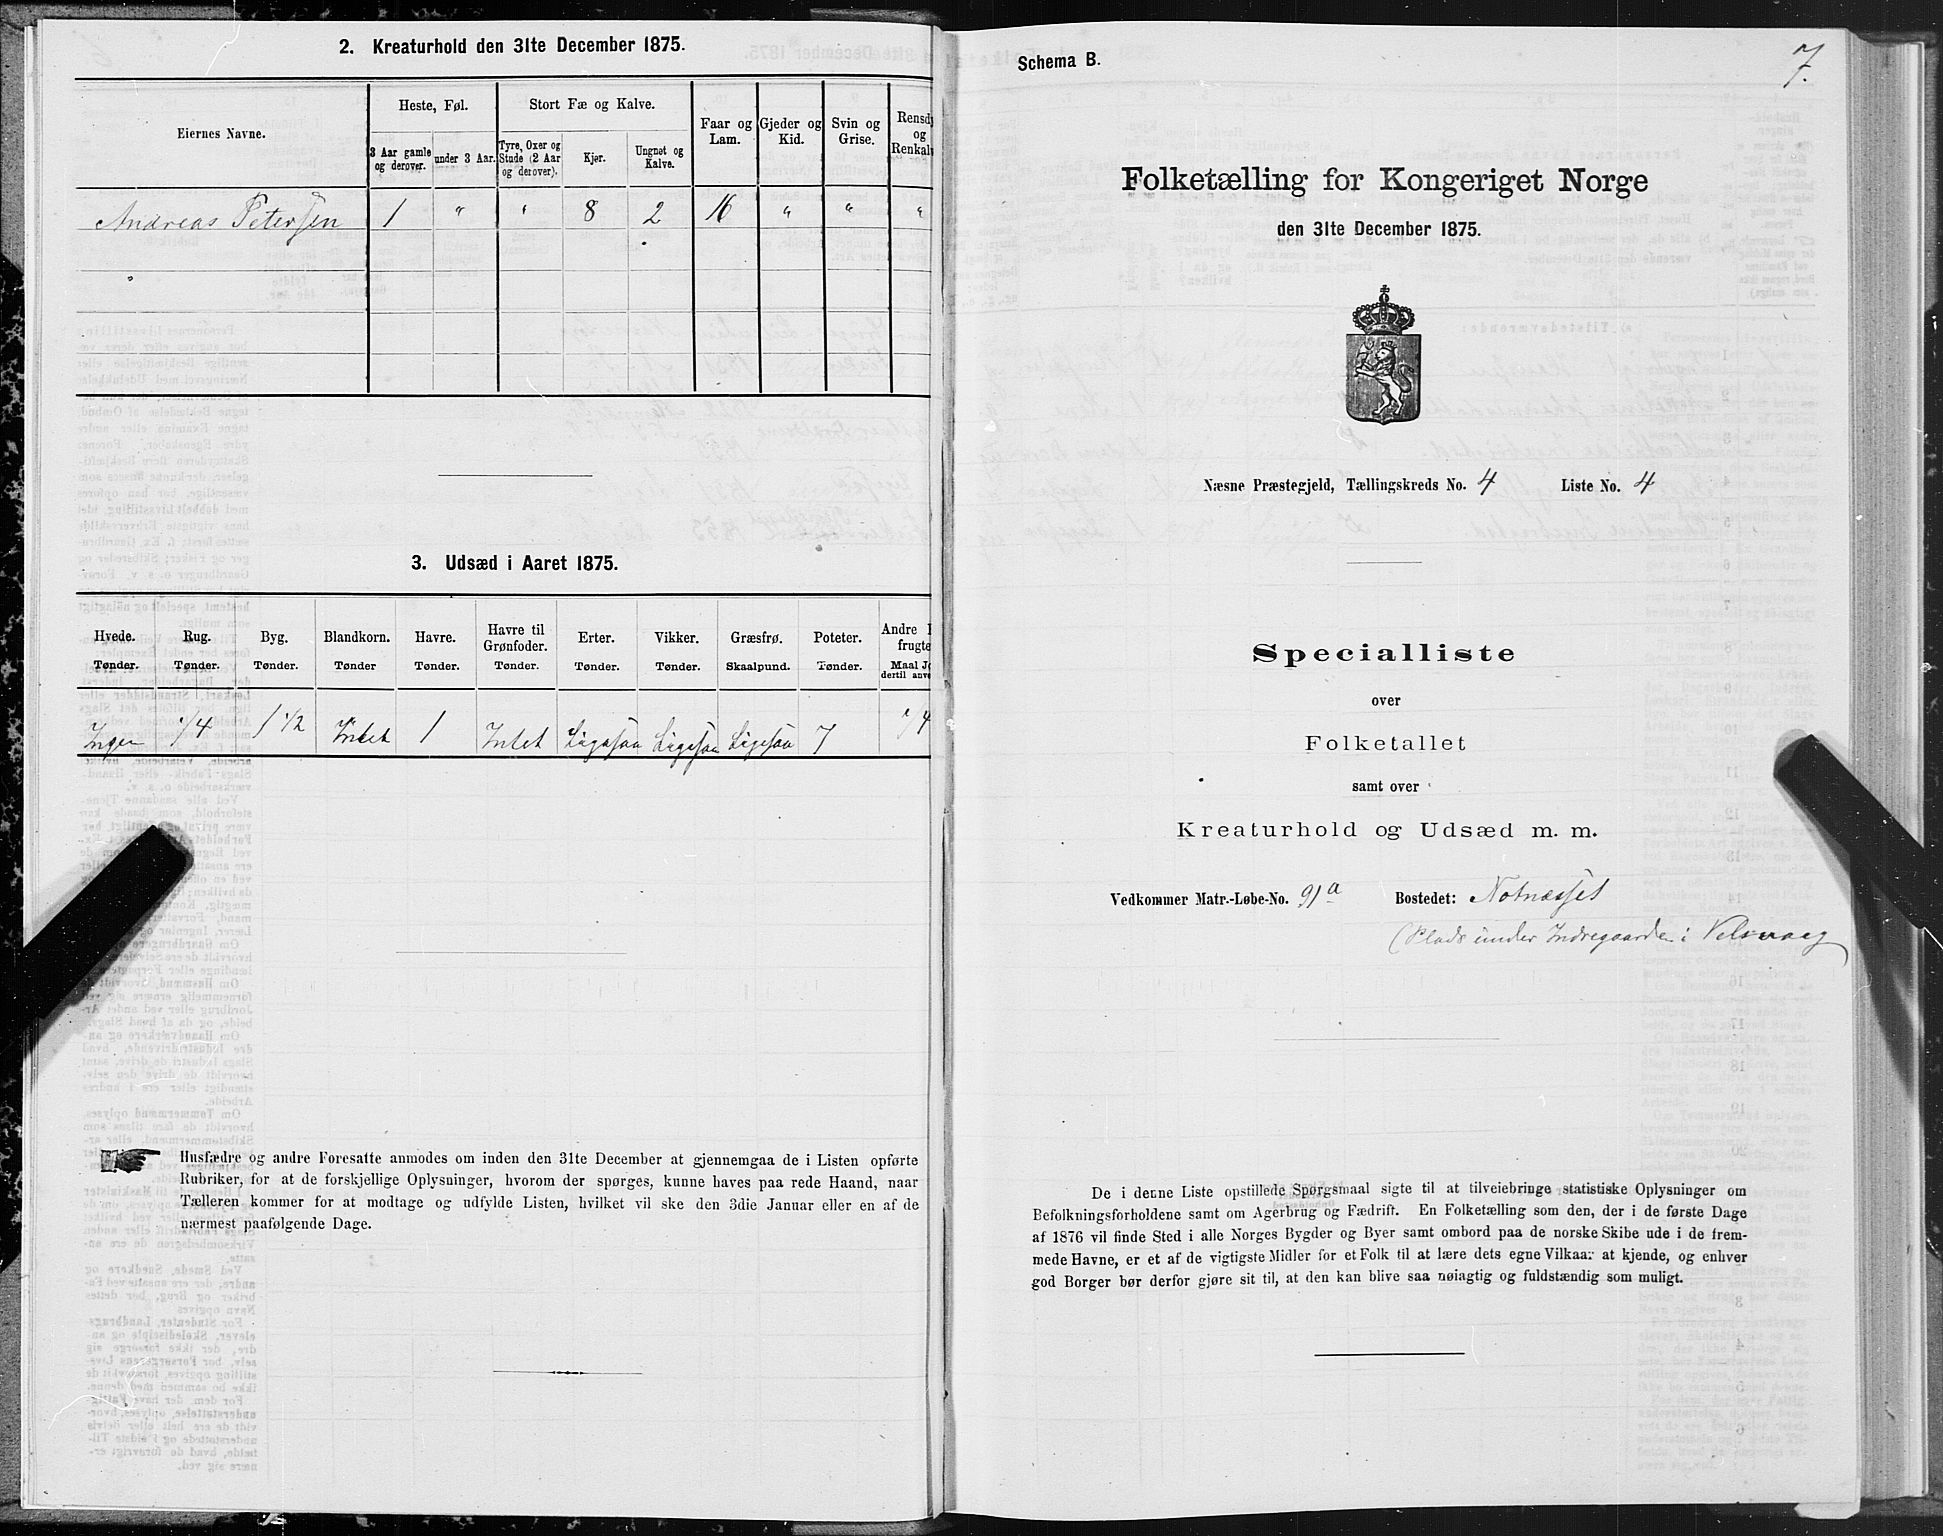 2. Kreaturhold den 31te December 1875.
Eiernes Navne.
Heste, Føl.
Stort Fæ og Kalve.
Faar og Lam.
Gjeder og Kid.
Svin og Grise.
Rensdy
og
Renkalv
3 Aar gamle og derover.
under 3 Aar.
Tyre, Oxer og Stude (2 Aar og derover).
Kjør.
Ungnøt og Kalve.
Andreas Petersen 1 " " 8 2 16 " " "
"
3. Udsæd i Aaret 1875.
Hvede. Rug. Byg. Blandkorn. Havre. Havre til Grønfoder. Erter. Vikker. Græsfrø. Poteter. Andre
frugte
Tønder. Tønder. Tønder. Tønder Tønder. Tønder. Tønder. Tønder. Skaalpund. Tønder. Maal
dertil anv
Ingen 1/4 1 1/2 Intet 1 Intet Ligesaa Ligesaa Ligesaa 7 1/4
Husfædre og andre Foresatte anmodes om inden den 31te December at gjennemgaa de i Listen opførte
Rubriker, for at de forskjellige Oplysninger, hvorom der spørges, kunne haves paa rede Haand, naar
Tælleren kommer for at modtage og udfylde Listen, hvilket vil ske den 3die Januar eller en af de
nærmest paafølgende Dage.
7.
Schema B.
Folketælling for Kongeriget Norge
den 31te December 1875.
Næsne Præstegjeld, Tællingskreds No. 4 Liste No. 4
Specialliste
over
Folketallet
samt over
Kreaturhold og Udsæd m. m.
Vedkommer Matr.-Løbe-No. 91a Bostedet: Notnæsset
(Plads under Indregaarden i Velsvaag
De i denne Liste opstillede Spørgsmaal sigte til at tilveiebringe statistiske Oplysninger om
Befolkningsforholdene samt om Agerbrug og Fædrift. En Folketælling som den, der i de første Dage
af 1876 vil finde Sted i alle Norges Bygder og Byer samt ombord paa de norske Skibe ude i de frem-
mede Havne, er et af de vigtigste Midler for et Folk til at lære dets egne Vilkaar at kjende, og enhver
god Borger bør derfor gjøre sit til, at den kan blive saa nøiagtig og fuldstændig som muligt.